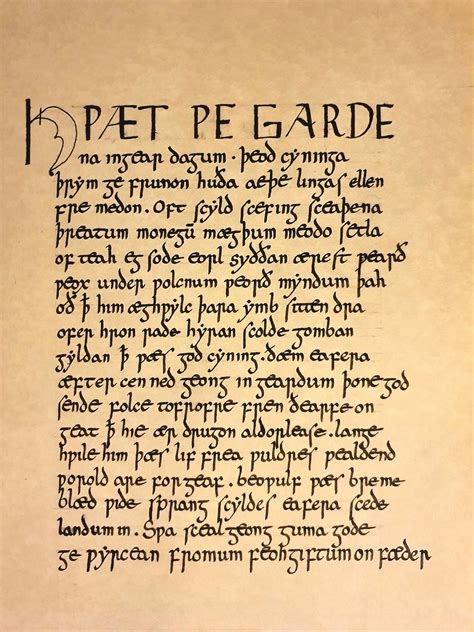 HǷÆT ǷE GARDE
na ingear dagum . þeod cyninga
þrym ge frunon huða æþe lingas ellen
fre medon . Oft scyld scefing sceaþena
þreatum monegū mægþum meodo setla
of teah eg sode eorl syððan ærest ƿearð
ƿeox under ƿolcnum ƿeorð myndum þah
oð ꝥ him æghƿylc þara ymb sitten dra
ofer hron rade hyran scolde gomban
gyldan ꝥ ƿæs god cyning . ðæm eafera
æfter cen ned geong in geardum þone god
sende folce tofrofre fren ðearfe on
geat ꝥ hie ær drugon aldorlease . lange
hƿile him þæs lif frea ƿuldres ƿealdend
ƿorold are forgeaf . beoƿulf ƿæs breme
blæd ƿide sprang scyldes eafera scede
landum in . Sƿa sceal geong guma gode
ge ƿyrcean fromum feohgiftum on fæder